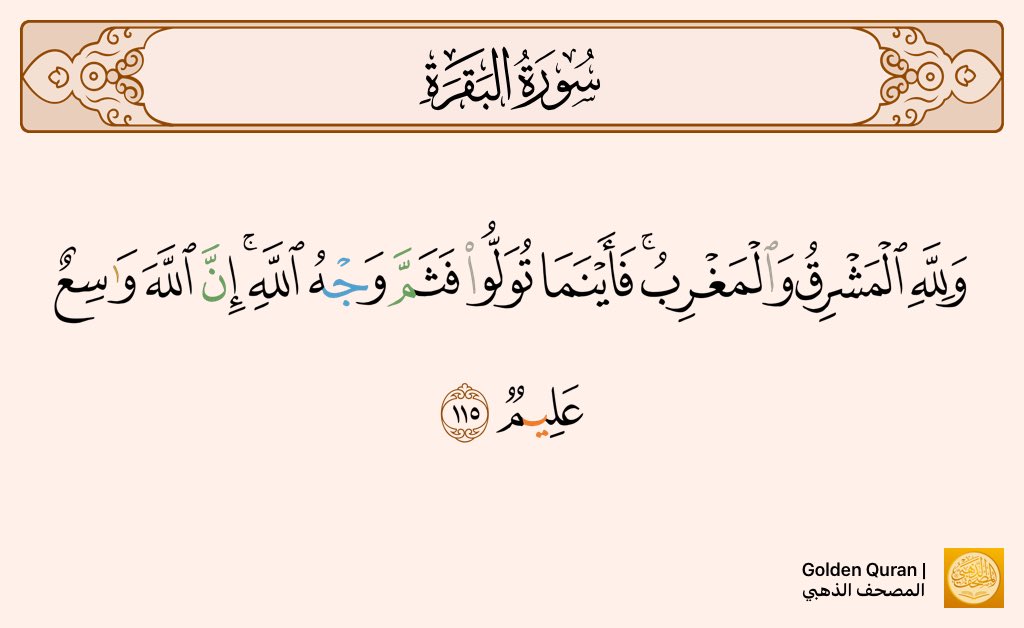 سُورَةُ البَقَرَةِ
وَلِلَّهِ ٱلْمَشْرِقُ وَٱلْمَغْرِبُ ۚ فَأَيْنَمَا تُوَلُّوا۟ فَثَمَّ وَجْهُ ٱللَّهِ ۚ إِنَّ ٱللَّهَ وَٰسِعٌ
عَلِيمٌ ١١٥
Golden Quran |
المصحف الذهبي